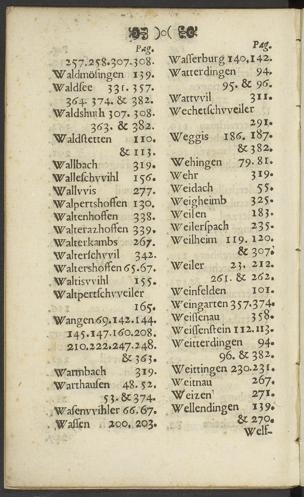 )o(
Pag.
257.258.307.308.
Waldmösingen 139.
Waldsee 331. 357.
364. 374. & 382.
Waldshuth 307. 308.
363. & 382.
Waldstetten 110.
& 113.
Wallbach 319.
Walleschvvihl 156.
Wallvvis 277.
Walpertshoffen 130.
Waltenhoffen 338.
Walterazhoffen 339.
Walterkambs 267.
Walterschvvil 342.
Waltershoffen 65.67.
Waltisvvihl 155.
Waltpertschvveiler
165.
Wangen 69.142.144.
145.147.160.208.
210.222.247.248.
& 363.
Warmbach 319.
Warthausen 48.52.
53. & 374.
Wasenvvihler 66.67.
Wassen 200. 203.
Pag.
Wasserburg 140.142.
Watterdingen 94.
95. & 96.
Wattvvil 311.
Wechetschvveiler
291.
Weggis 186. 187.
& 382.
Wehingen 79. 81.
Wehr 319.
Weidach 55.
Weigheimb 325.
Weilen 183.
Weilerspach 235.
Weilheim 119. 120.
& 307.
Weiler 23. 212.
261. & 262.
Weinfelden 101.
Weingarten 357.374.
Weissenau 358.
Weissenstein 112.113.
Weitterdingen 94.
96. & 382.
Weittingen 230.231.
Weitnau 267.
Weizen 271.
Wellendingen 139.
& 270.
Welf-